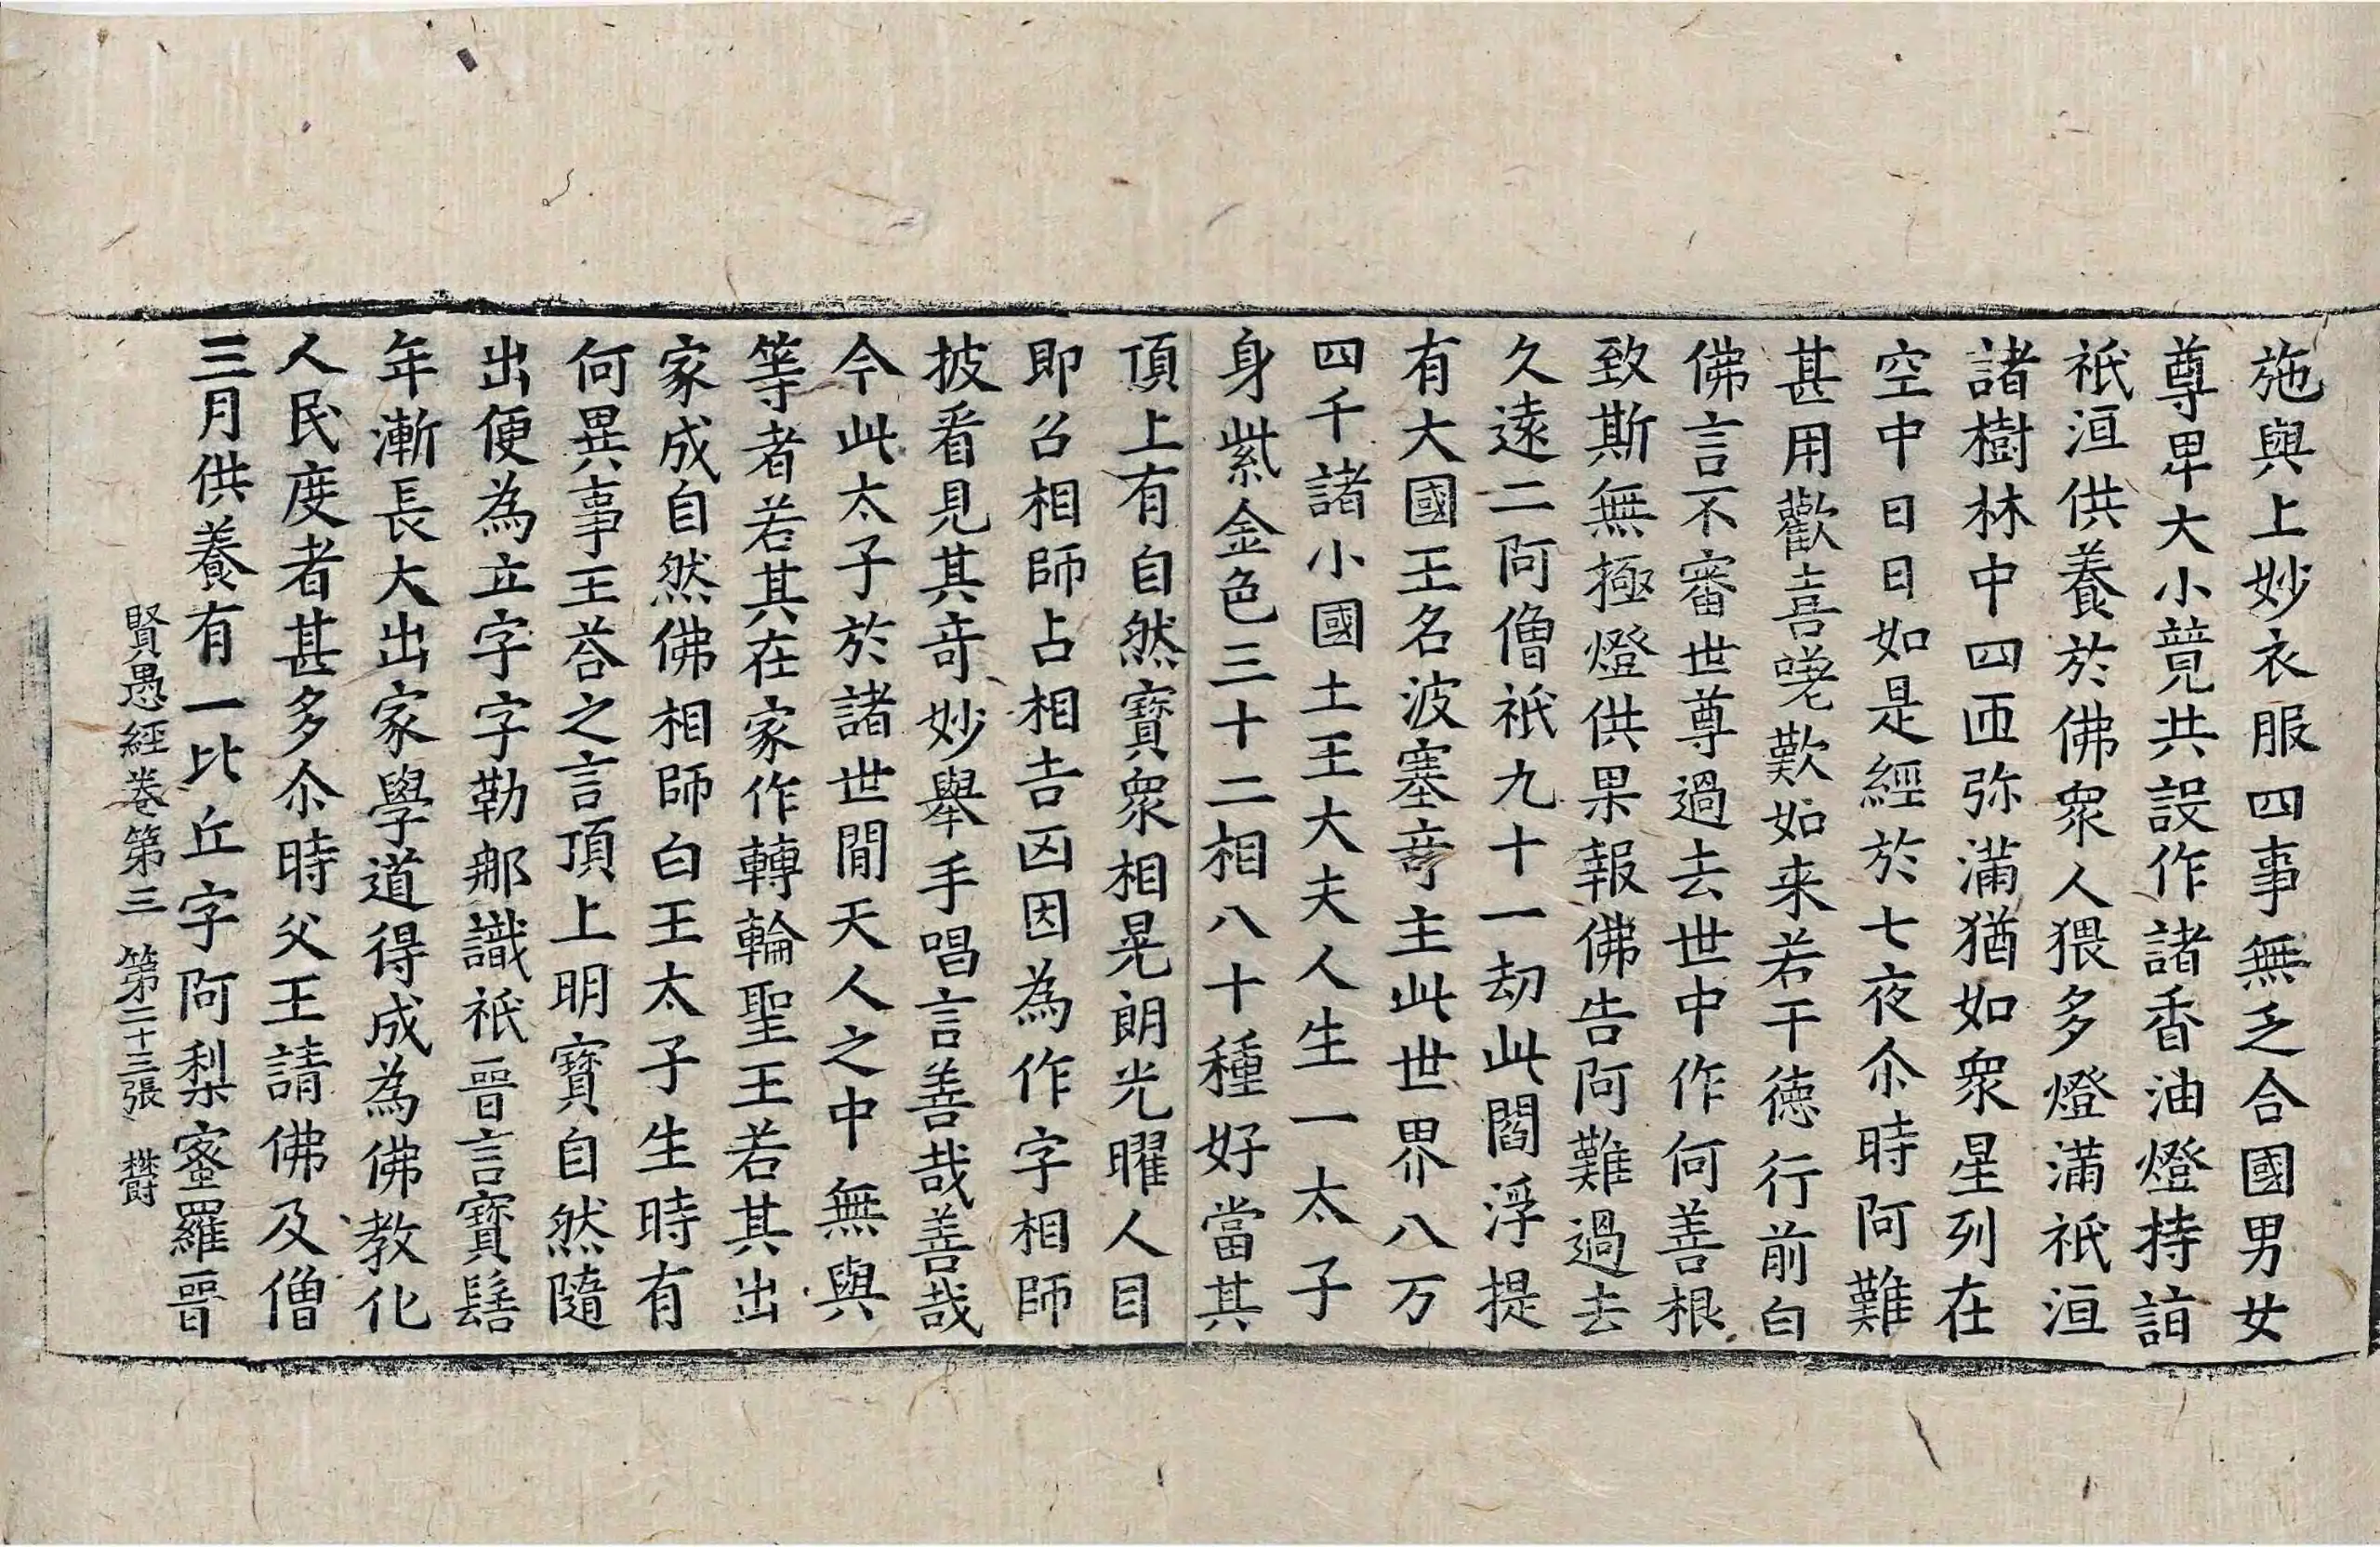 施與上妙衣服四事無乏合國男女
尊卑大小競共設作諸香油燈持詣
祇洹供養於佛衆人猥多燈滿祇洹
諸樹林中四匝弥滿猶如衆星列在
空中日日如是經於七夜尒時阿難
甚用歡喜嗟歎如来若干德行前白
佛言不審世尊過去世中作何善根
致斯無極燈供果報佛告阿難過去
久遠二阿僧祇九十一劫此閻浮提
有大國王名波塞奇主此世界八万
四千諸小國土王大夫人生一太子
身紫金色三十二相八十種好當其
頂上有自然寶衆相晃朗光曜人目
即召相師占相吉凶因為作字相師
披看見其奇妙舉手唱言善哉善哉
今此太子於諸世間天人之中無與
等者若其在家作轉輪聖王若其出
家成自然佛相師白王太子生時有
何異事王荅之言頂上明寶自然隨
出便為立字字勒那識祇晉言寶髻
年漸長大出家學道得成為佛教化
人民度者甚多尒時父王請佛及僧
三月供養有一比丘字阿梨蜜羅晉
賢愚經卷第三 第二十三張 欝